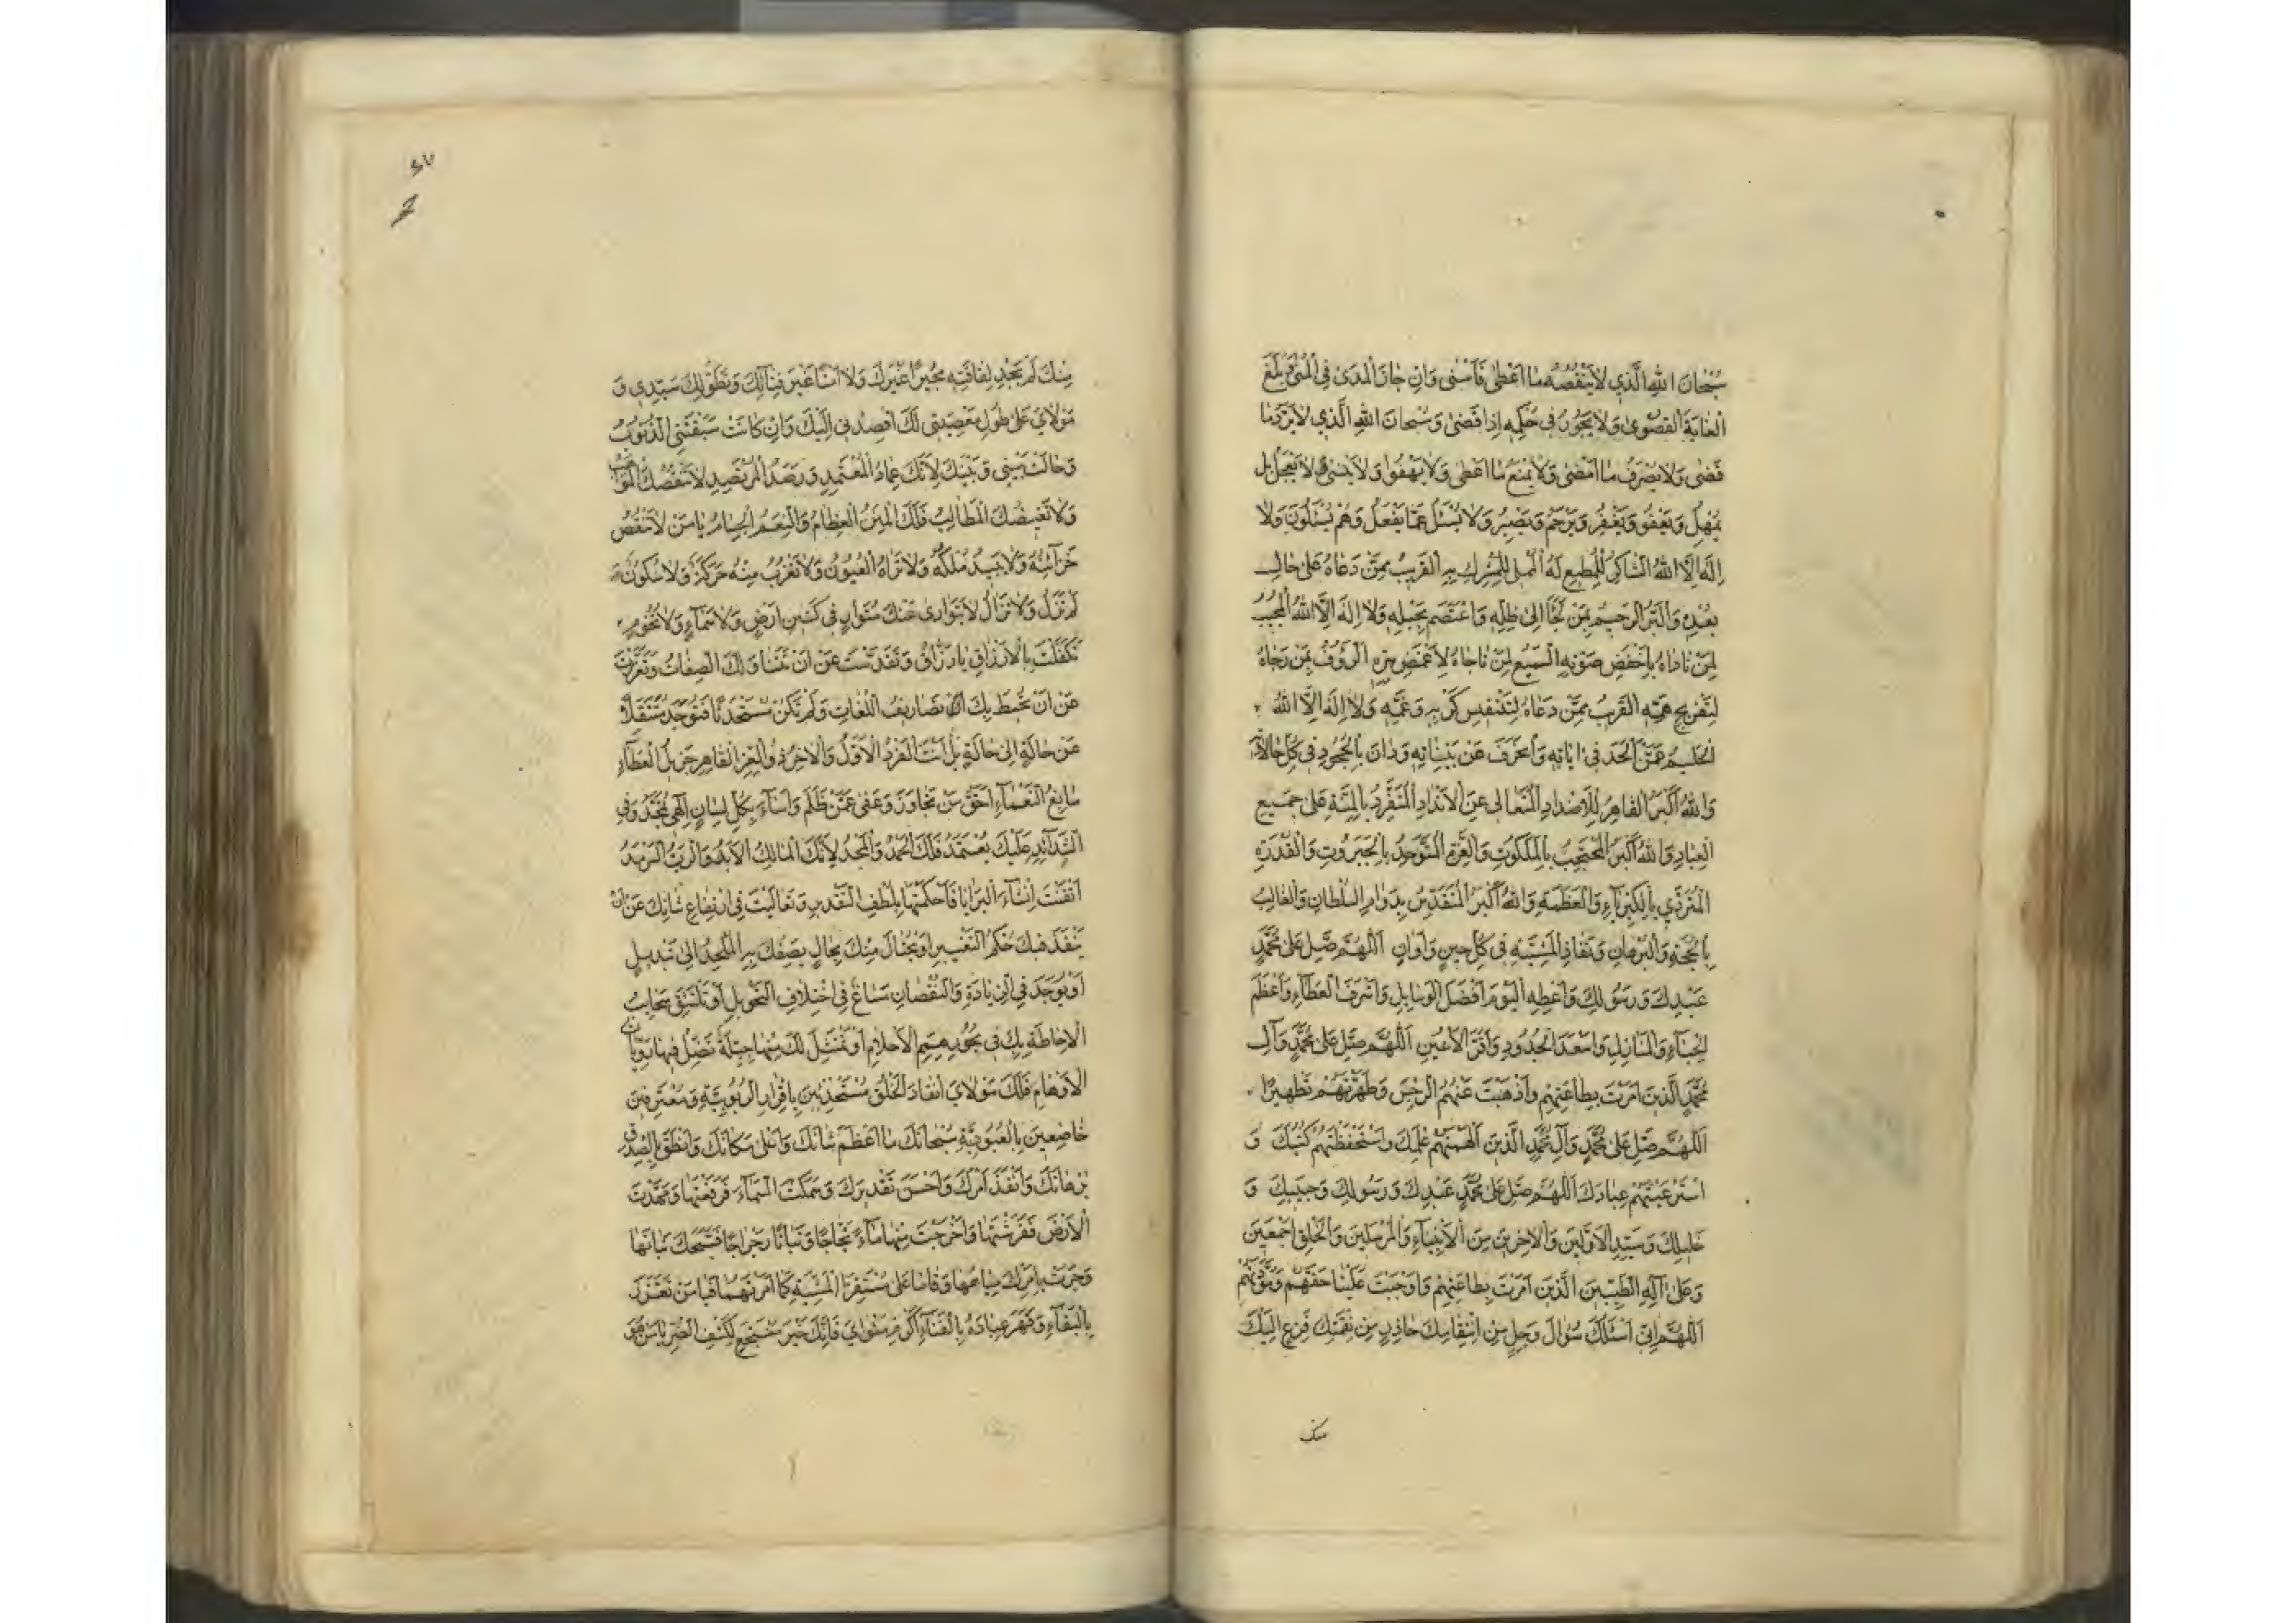 سُبْحَانَ اللهِ الَّذِي لَا يَنْقُصُهُ مَا اَعْطىٰ فَاَسْنىٰ وَاِنْ جَازَ الْمَدىٰ فِي الْمُنىٰ وَبَلَغَ
الْغَايَةَ الْقُصْوىٰ وَلَا يَجُورُ فِي حُكْمِهِ اِذَا قَضىٰ وَسُبْحَانَ اللهِ الَّذِي لَا يُرَدُّ مَا
قَضىٰ وَلَا يُصْرَفُ مَا اَمْضىٰ وَلَا يُمْنَعُ مَا اَعْطىٰ وَلَا يَهْفُوا وَلَا يَنْسىٰ وَلَا يَعْجَلُ بَلْ
يُمْهِلُ وَيَعْفُو وَيَغْفِرُ وَيَرْحَمُ وَيَصْبِرُ وَلَا يُسْئَلُ عَمَّا يَفْعَلُ وَهُمْ يُسْئَلُونَ وَلَا
اِلَهَ اِلَّا اللهُ الشَّاكِرُ لِلْمُطِيعِ لَهُ الْمُمْلِي لِلْمُشْرِكِ بِهِ الْقَرِيبُ مِمَّنْ دَعَاهُ عَلىٰ حَالِ
بُعْدِهِ وَالْبَرُّ الرَّحِيمُ بِمَنْ لَجَأَ اِلىٰ ظِلِّهِ وَاعْتَصَمَ بِحَبْلِهِ وَلَا اِلَهَ اِلَّا اللهُ الْمُجِيبُ
لِمَنْ نَادَاهُ بِاَخْفَضِ صَوْتِهِ السَّمِيعُ لِمَنْ نَاجَاهُ لِاَغْمَضِ سِرِّهِ الرَّؤُفُ بِمَنْ رَجَاهُ
لِتَفْرِيجِ هَمِّهِ الْقَرِيبُ مِمَّنْ دَعَاهُ لِتَنْفِيسِ كَرْبِهِ وَغَمِّهِ وَلَا اِلَهَ اِلَّا اللهُ
الْحَلِيمُ عَمَّنْ اَلْحَدَ فِي اٰيَاتِهِ وَانْحَرَفَ عَنْ بَيِّنَاتِهِ وَدَانَ بِالْجُحُودِ فِي كُلِّ حَالَاتِهِ
وَاللهُ اَكْبَرُ الْقَاهِرُ لِلْاَضْدَادِ الْمُتَعَالِي عَنِ الْاَنْدَادِ الْمُتَفَرِّدُ بِالْمِنَّةِ عَلىٰ جَمِيعِ
الْعِبَادِ وَاللهُ اَكْبَرُ الْمُحْتَجِبُ بِالْمَلَكُوتِ وَالْعِزَّةِ الْمُتَوَحِّدُ بِالْجَبَرُوتِ وَالْقُدْرَةِ
الْمُتَرَدِّي بِالْكِبْرِيَآءِ وَالْعَظَمَةِ وَاللهُ اَكْبَرُ الْمُتَقَدِّسُ بِدَوَامِ السُّلْطَانِ وَالْغَالِبُ
بِالْحُجَّةِ وَالْبُرْهَانِ وَنَفَاذِ الْمَشِيَّةِ فِي كُلِّ حِينٍ وَاَوَانٍ اَللّٰهُمَّ صَلِّ عَلىٰ مُحَمَّدٍ
عَبْدِكَ وَرَسُولِكَ وَاَعْطِهِ الْيَوْمَ اَفْضَلَ الْوَسَايِلِ وَاَشْرَفَ الْعَطَآءِ وَاَعْظَمَ
الْحِبَآءِ وَالْمَنَازِلِ وَاَسْعَدَ الْجُدُودِ وَاَقَرَّ الْاَعْيُنِ اَللّٰهُمَّ صَلِّ عَلىٰ مُحَمَّدٍ وَآلِ
مُحَمَّدٍ الَّذِينَ اَمَرْتَ بِطَاعَتِهِمْ وَاَذْهَبْتَ عَنْهُمُ الرِّجْسَ وَطَهَّرْتَهُمْ تَطْهِيرًا
اَللّٰهُمَّ صَلِّ عَلىٰ مُحَمَّدٍ وَآلِ مُحَمَّدٍ الَّذِينَ اَلْهَمْتَهُمْ عِلْمَكَ وَاسْتَحْفَظْتَهُمْ كُتُبَكَ وَ
اسْتَرْعَيْتَهُمْ عِبَادَكَ اَللّٰهُمَّ صَلِّ عَلىٰ مُحَمَّدٍ عَبْدِكَ وَرَسُولِكَ وَحَبِيبِكَ وَ
خَلِيلِكَ وَسَيِّدِ الْاَوَّلِينَ وَالْاٰخِرِينَ مِنَ الْاَنْبِيَآءِ وَالْمُرْسَلِينَ وَالْخَلْقِ اَجْمَعِينَ
وَعَلىٰ آلِهِ الطَّيِّبِينَ الَّذِينَ اَمَرْتَ بِطَاعَتِهِمْ وَاَوْجَبْتَ عَلَيْنَا حَقَّهُمْ وَمَوَدَّتَهُمْ
اَللّٰهُمَّ اِنِّي اَسْئَلُكَ سُؤَالَ وَجِلٍ مِنِ انْتِقَامِكَ حَاذِرٍ مِنْ نِقْمَتِكَ فَزِعٍ اِلَيْكَ
منك
٥٧
مِنْكَ لَمْ يَجِدْ لِفَاقَتِهِ مُجِيرًا غَيْرَكَ وَلَا اَمْنًا غَيْرَ فِنَآئِكَ وَتَطَوُّلِكَ سَيِّدِي وَ
مَوْلَايَ عَلىٰ طُولِ مَعْصِيَتِي لَكَ اَقْصِدُنِي اِلَيْكَ وَاِنْ كَانَتْ سَبَقَتْنِي الذُّنُوبُ
وَحَالَتْ بَيْنِي وَبَيْنَكَ لِاَنَّكَ عِمَادُ الْمُعْتَمِدِ وَرَصَدُ الْمُرْتَصِدِ لَا تَنْقُصُكَ الْمَوَاهِبُ
وَلَا تَغِيضُكَ الْمَطَالِبُ فَلَكَ الْمِنَنُ الْعِظَامُ وَالنِّعَمُ الْجِسَامُ يَا مَنْ لَا تَنْقُصُ
خَزَآئِنُهُ وَلَا يَبِيدُ مُلْكُهُ وَلَا تَرَاهُ الْعُيُونُ وَلَا تَعْزُبُ مِنْهُ حَرَكَةٌ وَلَا سُكُونٌ
لَمْ تَزَلْ وَلَا تَزَالُ لَا يَتَوَارىٰ عَنْكَ مُتَوَارٍ فِي كَنِينِ اَرْضٍ وَلَا سَمَآءٍ وَلَا تُخُومٍ
تَكَفَّلْتَ بِالْاَرْزَاقِ يَا رَزَّاقُ وَتَقَدَّسْتَ عَنْ اَنْ تَتَنَاوَلَكَ الصِّفَاتُ وَتَعَزَّزْتَ
عَنْ اَنْ تُحِيطَ بِكَ تَصَارِيفُ اللُّغَاتِ وَلَمْ تَكُنْ مُسْتَحْدَثًا فَتُوجَدَ مُتَنَقِّلًا
عَنْ حَالَةٍ اِلىٰ حَالَةٍ بَلْ اَنْتَ الْفَرْدُ الْاَوَّلُ وَالْاٰخِرُ ذُو الْعِزِّ الْقَاهِرِ جَزِيلُ الْعَطَآءِ
سَابِغُ النَّعْمَآءِ اَحَقُّ مَنْ تَجَاوَزَ وَعَفىٰ عَمَّنْ ظَلَمَ وَاَسَآءَ بِكُلِّ لِسَانٍ اِلٰهِي تُمَجَّدُ وَفِي
الشَّدَآئِدِ عَلَيْكَ يُعْتَمَدُ فَلَكَ الْحَمْدُ وَالْمَجْدُ لِاَنَّكَ الْمَالِكُ الْاَبَدُ وَالرَّبُّ السَّرْمَدُ
اَتْقَنْتَ اِنْشَآءَ الْبَرَايَا فَاَحْكَمْتَهَا بِلُطْفِ التَّقْدِيرِ وَتَعَالَيْتَ فِي ارْتِفَاعِ شَانِكَ عَنْ اَنْ
يَنْفُذَ فِيكَ حُكْمُ التَّغْيِيرِ اَوْ يُحْتَالَ مِنْكَ بِحَالٍ يَصِفُكَ بِهِ الْمُلْحِدُ اِلىٰ تَبْدِيلٍ
اَوْ يُوجَدَ فِي الزِّيَادَةِ وَالنُّقْصَانِ مَسَاغٌ فِي اخْتِلَافِ التَّحْوِيلِ اَوْ تَلْتَثِقَ سَحَايِبُ
الْاِحَاطَةِ بِكَ فِي بُحُورِ هِمَمِ الْاَحْلَامِ اَوْ تَمْتَثِلَ لَكَ مِنْهَا جِبِلَّةٌ تَضِلُّ فِيهَا رَوِيَّاتُ
الْاَوْهَامِ فَلَكَ مَوْلَايَ انْقَادَ الْخَلْقُ مُسْتَخْذِئِينَ بِاِقْرَارِ الرُّبُوبِيَّةِ وَمُعْتَرِفِينَ
خَاضِعِينَ بِالْعُبُودِيَّةِ سُبْحَانَكَ مَا اَعْظَمَ شَانَكَ وَاَعْلىٰ مَكَانَكَ وَاَنْطَقَ بِالصِّدْقِ
بُرْهَانَكَ وَاَنْفَذَ اَمْرَكَ وَاَحْسَنَ تَقْدِيرَكَ وَسَمَكْتَ السَّمَآءَ فَرَفَعْتَهَا وَمَهَّدْتَ
الْاَرْضَ فَفَرَشْتَهَا وَاَخْرَجْتَ مِنْهَا مَآءً ثَجَّاجًا وَنَبَاتًا رَجْرَاجًا فَسَبَّحَكَ نَبَاتُهَا
وَجَرَتْ بِاَمْرِكَ مِيَاهُهَا وَقَامَا عَلىٰ مُسْتَقَرِّ الْمَشِيَّةِ كَمَا اَمَرْتَهُمَا فَيَا مَنْ تَعَزَّزَ
بِالْبَقَآءِ وَقَهَرَ عِبَادَهُ بِالْفَنَآءِ اَكْرِمْ مَثْوَايَ فَاِنَّكَ خَيْرُ مُنْتَجَعٍ لِكَشْفِ الضُّرِّ يَا مَنْ هُوَ